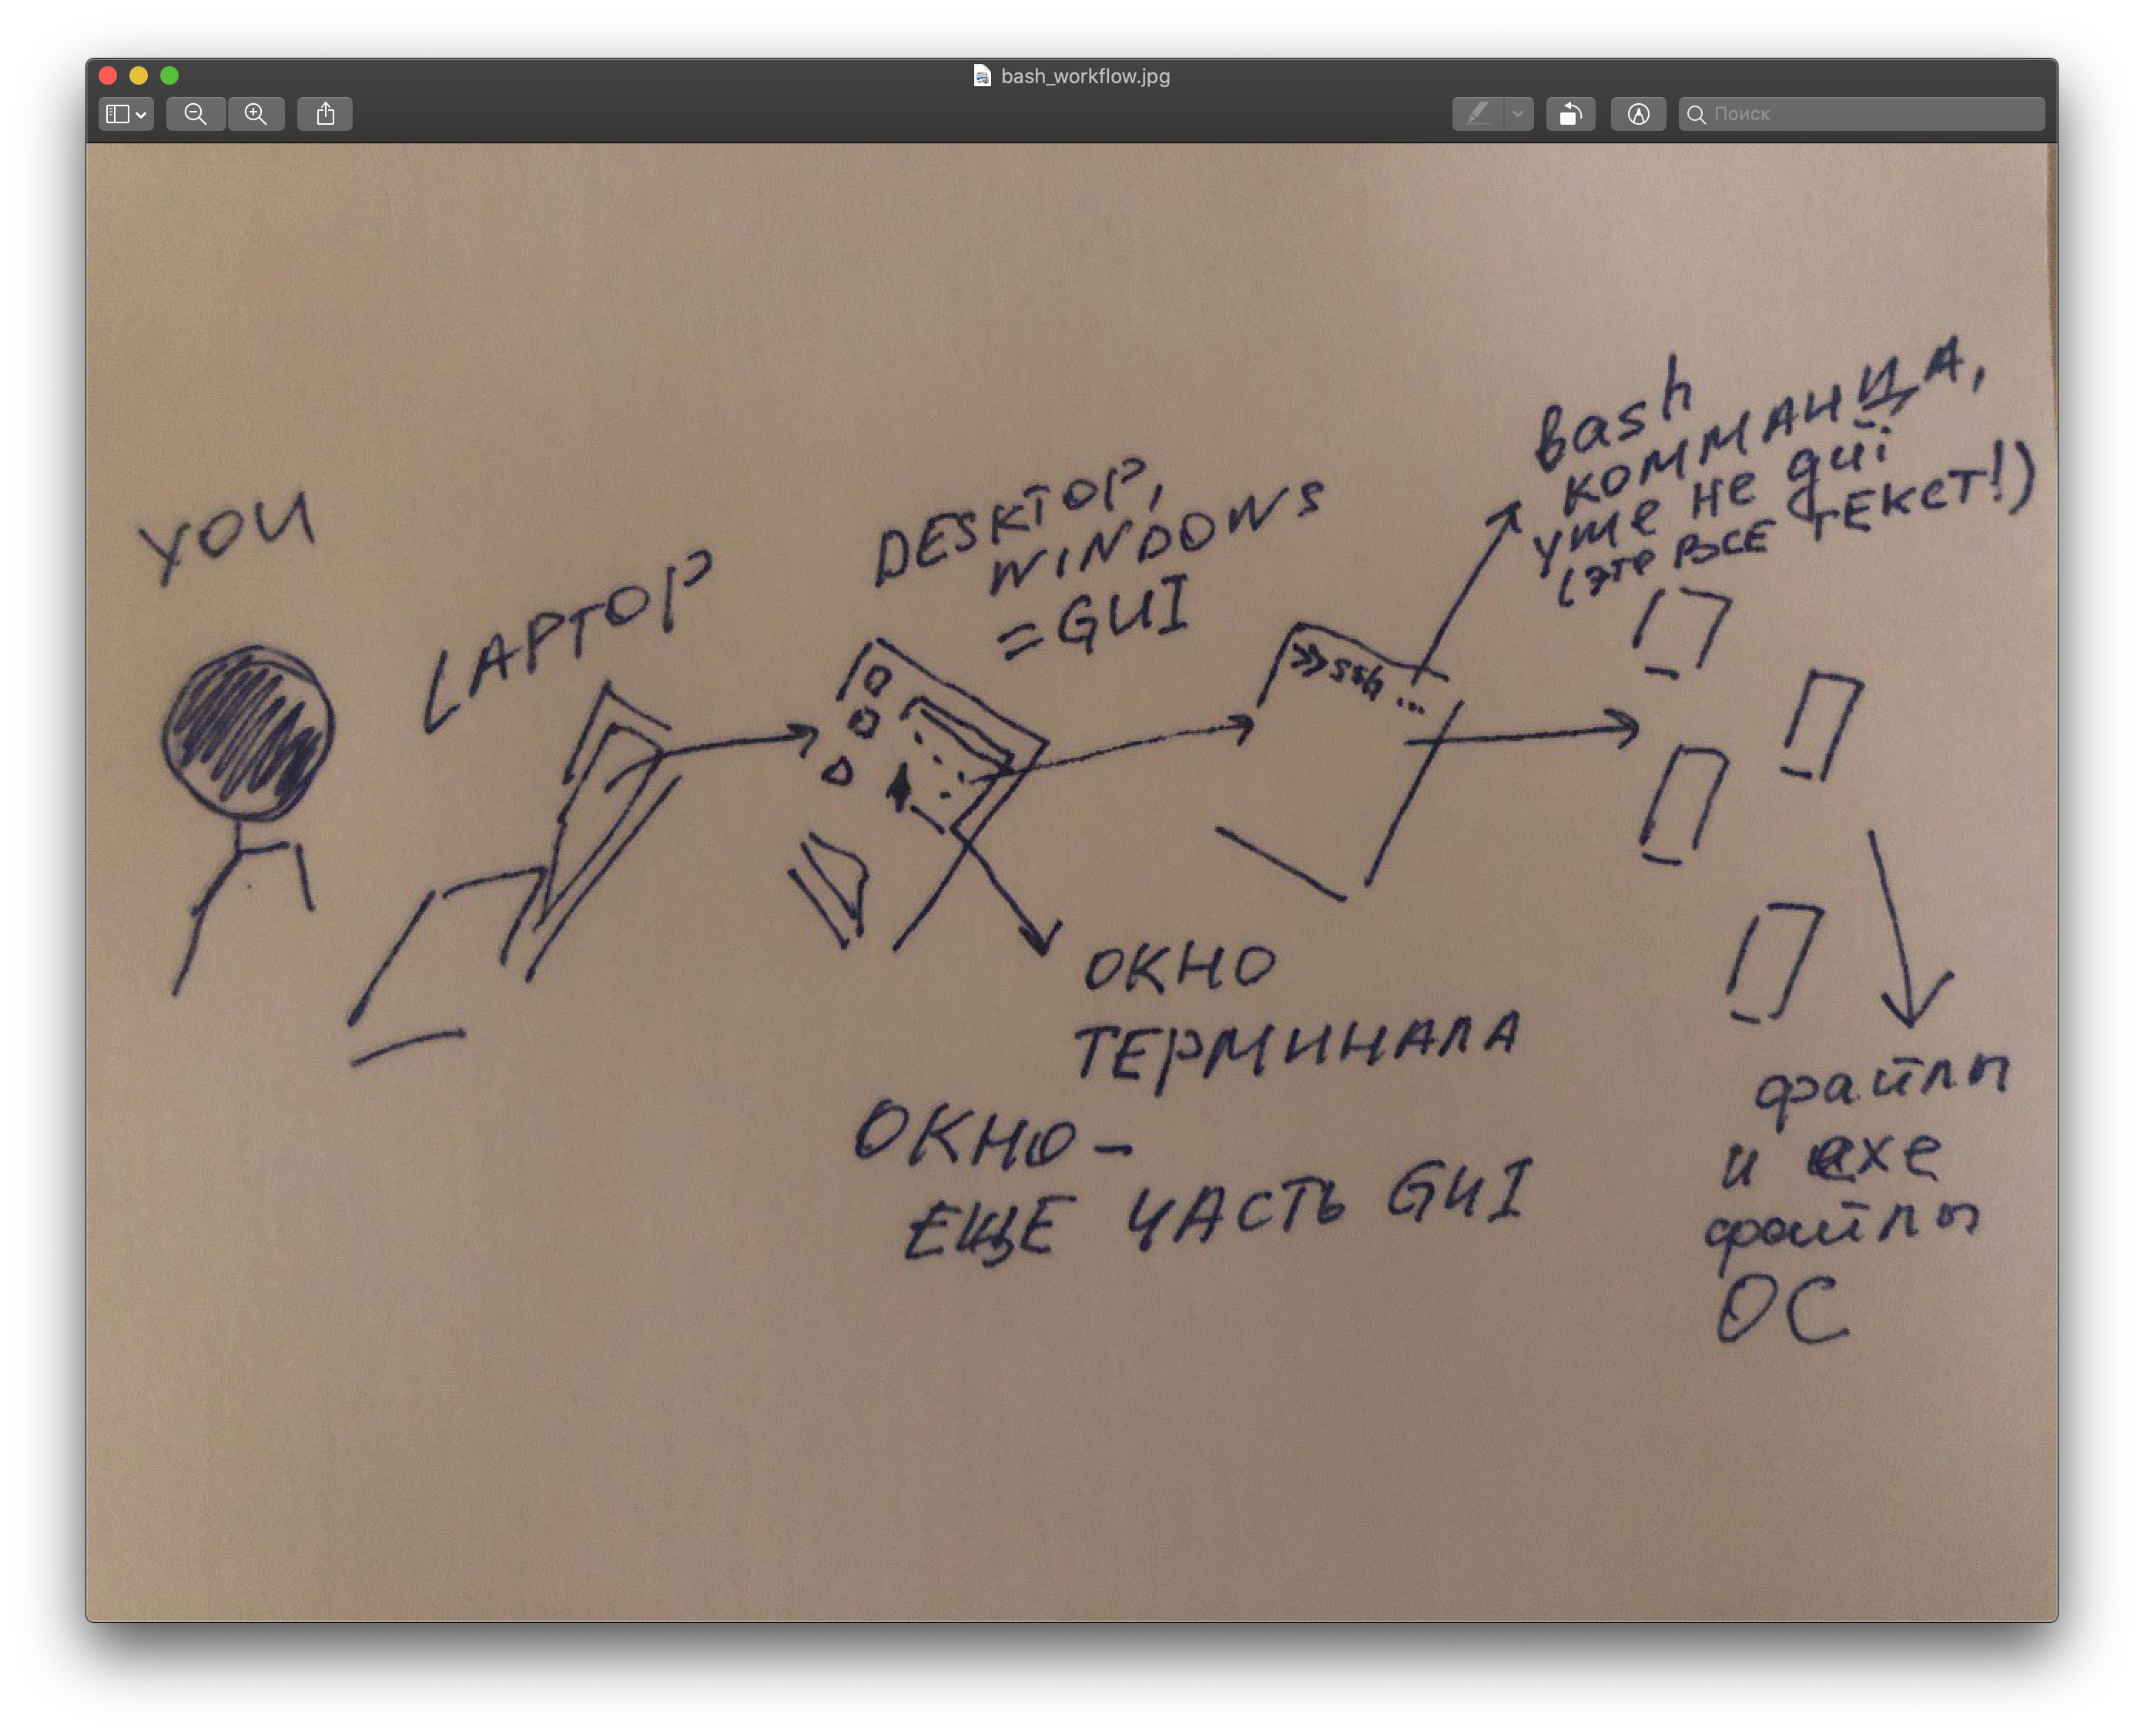 bash_workflow.jpg
Поиск
YOU
LAPTOP
DESKTOP,
WINDOWS
= GUI
bash
КОММАНДА,
уже не gui
(это ВСЕ ТЕКСТ!)
>> ssh ...
ОКНО
ТЕРМИНАЛА
ОКНО –
ЕЩЕ ЧАСТЬ GUI
файлы
и exe
файлы
ОС